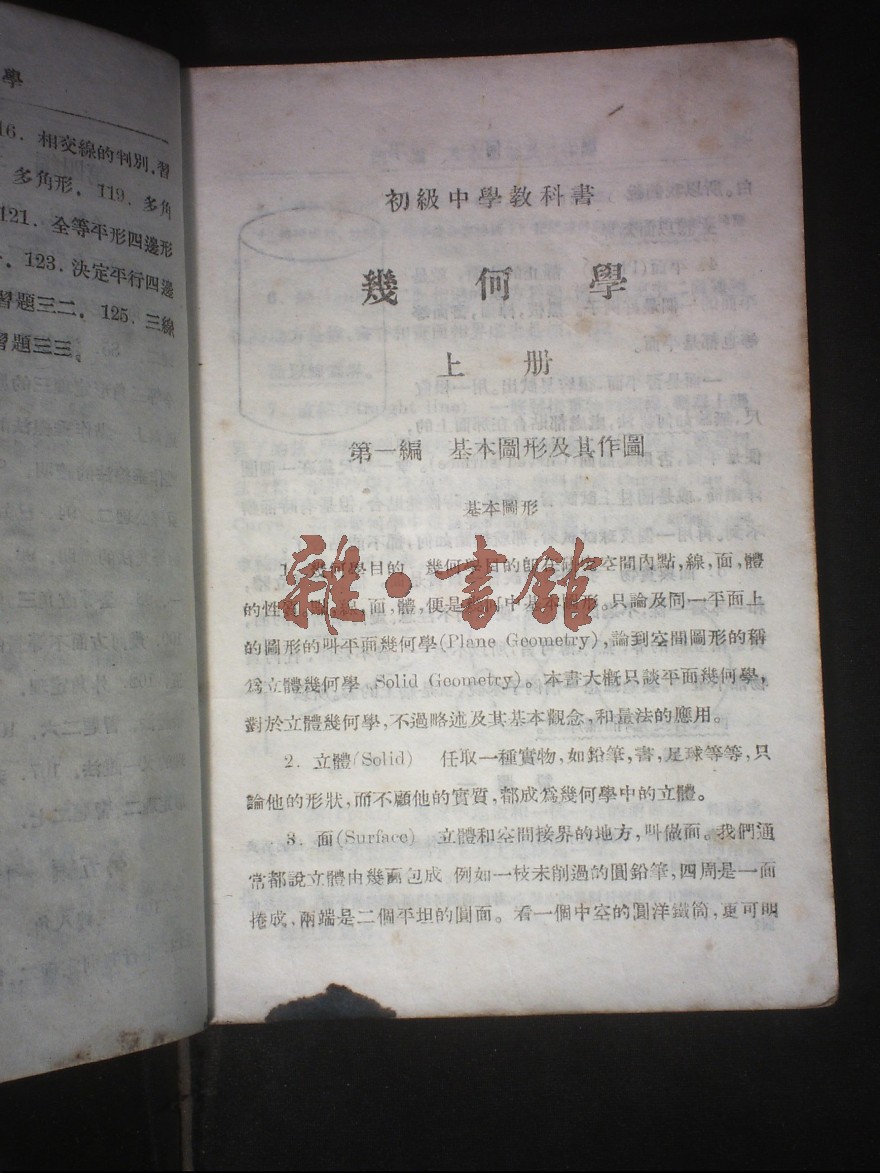 學
16．相交線的判別．習
多角形．119．多角
121．全等平形四邊形
．123．決定平行四邊
習題三二．125．三線
習題三三。
初級中學教科書
幾何學
上册
第一編　基本圖形及其作圖
基本圖形
雜·書館
1．幾何學目的　幾何學目的即在研究空間內點,線,面,體
的性質．點,線,面,體,便是幾何中基本圖形．只論及同一平面上
的圖形的叫平面幾何學(Plane Geometry),論到空間圖形的稱
爲立體幾何學 Solid Geometry)。本書大概只談平面幾何學,
對於立體幾何學,不過略述及其基本觀念,和量法的應用。
2．立體(Solid)　任取一種實物,如鉛筆,書,足球等等,只
論他的形狀,而不顧他的實質,都成爲幾何學中的立體。
3．面(Surface)　立體和空間接界的地方,叫做面。我們通
常都說立體由幾面包成 例如一枝未削過的圓鉛筆,四周是一面
捲成,兩端是二個平坦的圓面。看一個中空的圓洋鐵筒,更可明